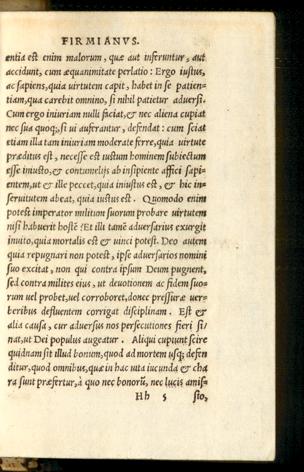 FIRMIANVS.
ẽntia est enim malorum, quæ aut inferuntur, aut
accidunt, cum æquanimitate perlatio: Ergo iustus,
ac sapiens, quia uirtutem capit, habet in se patien-
tiam, qua carebit omnino, si nihil patietur aduersi.
Cum ergo iniuriam nulli faciat, & nec aliena cupiat
nec sua quoq;, si ui auferantur, defendat: cum sciat
etiam illatam iniuriam moderate ferre, quia uirtute
præditus est, necesse est iustum hominem subiectum
esse iniusto, & contumelijs ab insipiente affici sapi-
entem, ut & ille peccet, quia iniustus est, & hic in
se uirtutem habeat, quia iustus est. Quomodo enim
potest imperator militum suorum probare uirtutem
nisi habuerit hostẽ? Et illi tamẽ aduersarius exurgit
inuito, quia mortalis est & uinci potest. Deo autem
quia repugnari non potest, ipse aduersarios nomini
suo excitat, non qui contra ipsum Deum pugnent,
sed contra milites eius, ut deuotionem ac fidem suo-
rum uel probet, uel corroboret, donec pressuræ uer-
beribus defluentem corrigat disciplinam. Est &
alia causa, cur aduersus nos persecutiones fieri si-
nat, ut Dei populus augeatur. Aliqui cupiunt scire
quidnam sit illud bonum, quod ad mortem usq; defen
ditur, quod omnibus, quæ in hac uita iucunda & cha
ra sunt præfertur, à quo nec bonorũ, nec lucis amis-
Hh 5 sio,